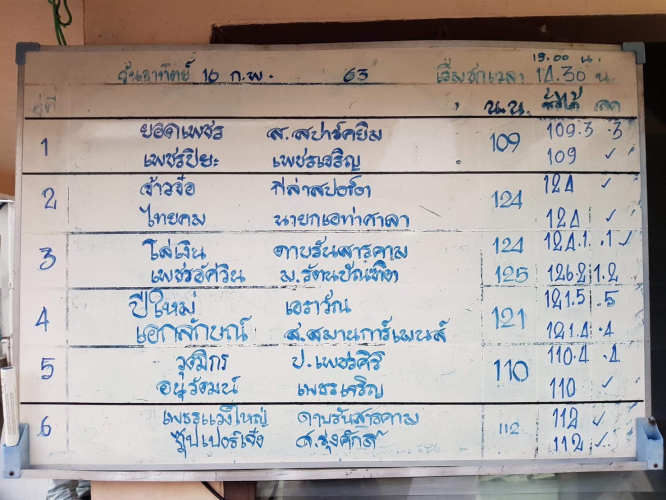 13.00 น.
วันอาทิตย์ 16 ก.พ. 63 เริ่มชกเวลา 14.30 น.
คู่ที่ น.น. ชั่งได้ ลด
1 ยอดเพชร ส.สปาร์คยิม 109 109.3 .3
เพชรปิยะ เพชรเจริญ 109 ✓
2 จ้าวจ๋อ กีล่าสปอร์ต 124 124 ✓
ไทยคม นายกเอท่าศาลา 124 ✓
3 ไล่เงิน ดาบรันสารคาม 124 124.1 .1 ✓
เพชรอัศวิน ม.รัตนบัณฑิต 125 126.2 1.2
4 ปีใหม่ เอราวัณ 121 121.5 .5
เอกลักษณ์ ส.สมานการ์เมนส์ 121.4 .4
5 วุฒิกร ป.เพชรศิริ 110 110.4 .4
อนุวัฒน์ เพชรเจริญ 110 ✓
6 เพชรแวงใหญ่ ดาบรันสารคาม 112 112 ✓
ซุปเปอร์เจ๋ง ศ.รุ่งศักดิ์ 112 ✓